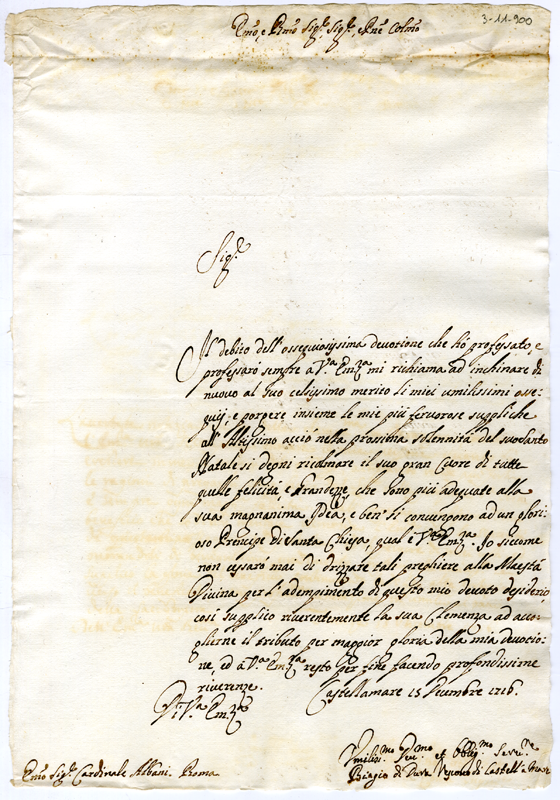 3-11-900
Emõ, e Rmõ Sig.r Sig.r, e Pne Colmõ
Sig.r
Il debito dell'ossequiosissima devozione che hò professato, e
professarò sempre a V.ra Em.za mi richiama ad inchinare di
nuovo al suo celsissimo merito li miei umilissimi osse-
quij, e porgere insieme le mie più fervorose suppliche
all'Altissimo acciò nella prossima solennità del suo Santo
Natale si degni ricolmare il suo gran Cuore di tutte
quelle felicità, e Grandezze, che sono più adequate alla
sua magnanima Idea, e ben si convengono ad un glori-
oso Prencipe di Santa Chiesa, qual è V.ra Em.za. Io siccome
non cessarò mai di drizzare tali preghiere alla Maestà
Divina per l'adempimento di questo mio devoto desiderio,
così supplico riverentemente la sua Clemenza ad acco-
glierne il tributo per maggior gloria della mia devozio-
ne, ed a V.ra Em.za resto per fine facendo profondissime
riverenze. Castellamare 15 Decembre 1716.
Di V.ra Em.za
Umiliss.mo Dev.mo et Obblig.mo Serv.re
Emõ Sig.r Cardinale Albani. Roma
Biagio di Dura Vescovo di Castell'a Mare